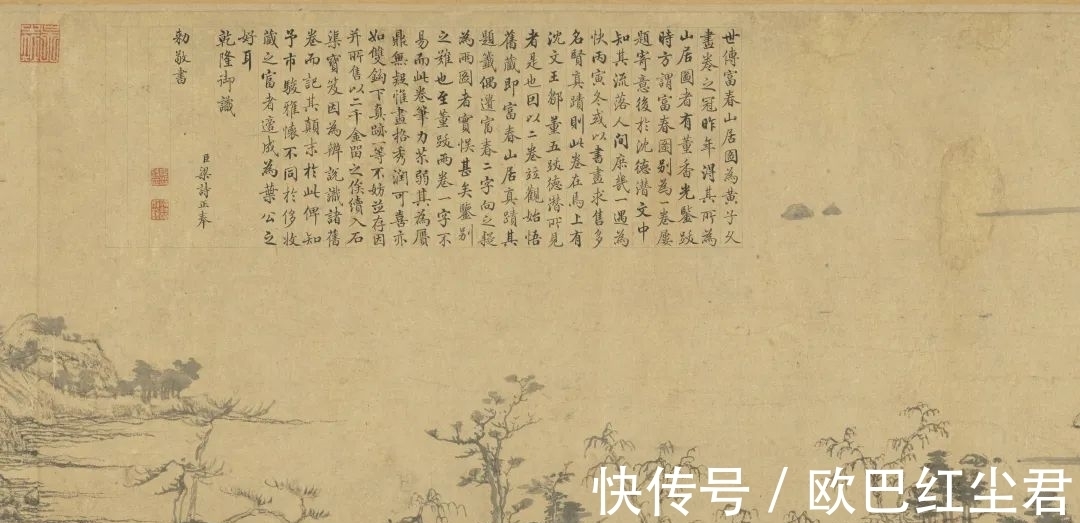 世傳富春山居圖為黃子久
畫卷之冠昨年得其所為
山居圖者有董香光鑒跋
時方謂富春圖別為一卷屢
題寄意後於沈德潛文中
知其流落人間庶幾一遇為
快丙寅冬或以書畫求售多
名賢真蹟則此卷在焉上有
沈文王鄒董五跋德潛所見
者是也因以二卷並觀始悟
舊藏即富春山居真蹟其
題籤偶遺富春二字向之疑
為兩圖者實悞甚矣鑒別
之難也至董跋兩卷一字不
易而此卷筆力苶弱其為贗
鼎無疑惟畫格秀潤可喜亦
如雙鈎下真跡一等不妨並存因
并所售以二千金留之俟續入石
渠寶笈因為辨說識諸舊
卷而記其顛末於此俾知
予市駿雅懷不同於侈收
藏之富者適成為葉公之
好耳
乾隆御識
臣梁詩正奉
勅敬書
快传号 / 欧巴红尘君